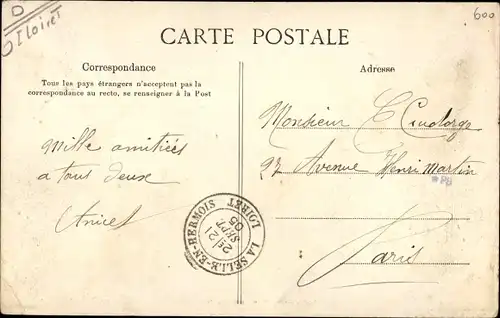 D
Loiret
600
CARTE POSTALE
Correspondance
Tous les pays étrangers n'acceptent pas la
correspondance au recto, se renseigner à la Post
Mille amitiés
a tout deux
Anicet
Adresse
Monsieur
97 Avenue Henri Martin
Paris
LA SELLE-EN-HERMOIS
LOIRET
21
SEPT
05